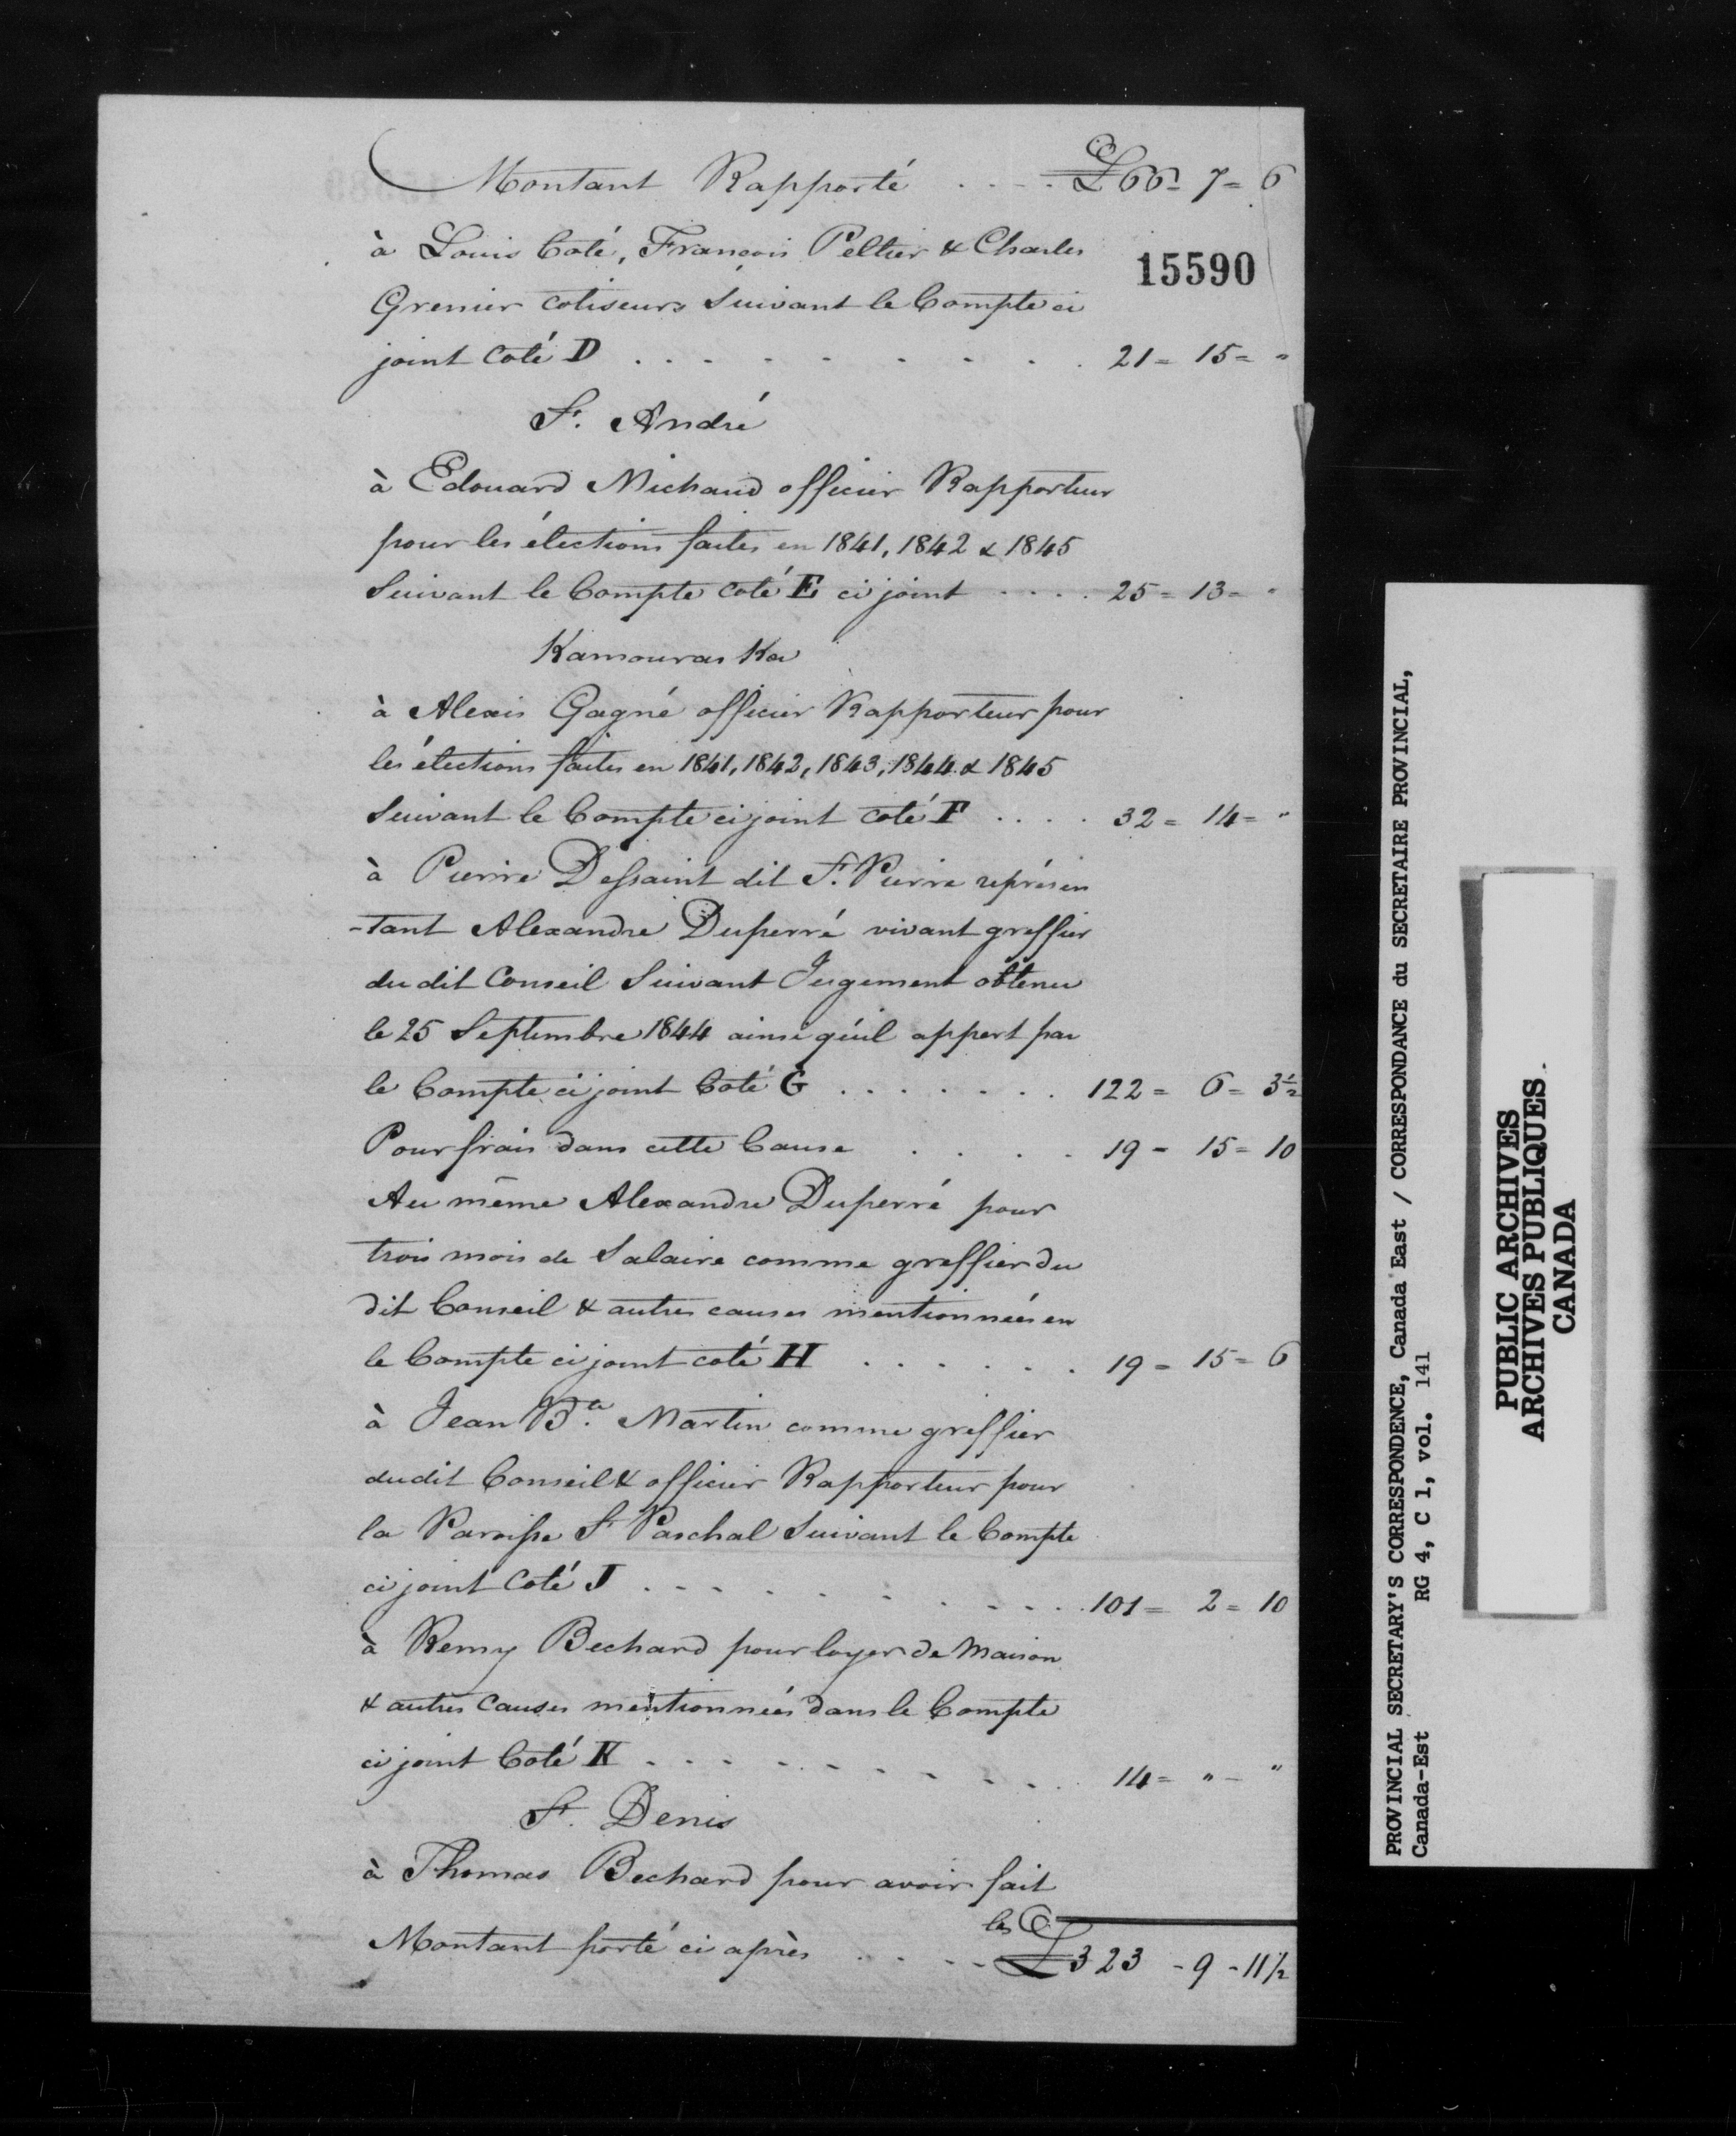 Montant Rapporté . . . . £66 = 7 = 6
15590
à Louis Coté, François Peltier & Charles
Grenier cotiseurs Suivant le Compte ci
joint Coté D . . . . . . . . . 21 = 15 = "
St. André
à Edouard Michaud officier Rapporteur
pour les élections faites en 1841, 1842 & 1845
Suivant le Compte coté E ci joint . . . . 25 = 13 = "
Kamouraska
à Alexis Gagné officier Rapporteur pour
les élections faites en 1841, 1842, 1843, 1844 & 1845
Suivant le Compte ci joint coté F . . . . 32 = 14 = "
à Pierre Dessaint dit St. Pierre représen
-tant Alexandre Duperré vivant greffier
du dit Conseil Suivant Jugement obtenu
le 25 Septembre 1844 ainsi qu'il appert par
le Compte ci joint Coté G . . . . . . . 122 = 6 = 3½
Pour frais dans cette Cause . . . . 19 = 15 = 10
Au même Alexandre Duperré pour
trois mois de Salaire comme greffier du
dit Conseil & autres causes mentionnées en
le Compte ci joint coté H . . . . . . 19 = 15 = 6
à Jean Bte. Martin comme greffier
du dit Conseil & officier Rapporteur pour
la Paroisse St Paschal Suivant le Compte
ci joint Coté J . . . . . . . . . 101 = 2 = 10
à Remy Bechard pour loyer de Maison
& autres Causes mentionnées dans le Compte
ci joint Coté K . . . . . . . . . 14 = " - "
St. Denis
à Thomas Bechard pour avoir fait
les
Montant porté ci après . . . . £323 - 9 - 11½
PROVINCIAL SECRETARY'S CORRESPONDENCE, Canada East / CORRESPONDANCE du SECRETAIRE PROVINCIAL,
Canada-Est RG 4, C 1, vol. 141
PUBLIC ARCHIVES
ARCHIVES PUBLIQUES
CANADA